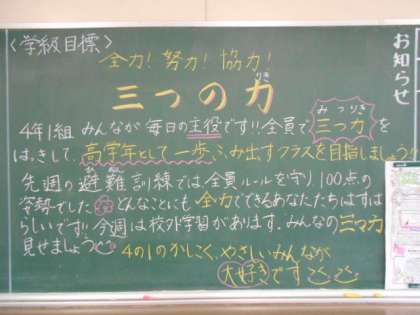 〈学級目標〉
全力! 努力! 協力!
三つの力
りき
みつりき
4年1組 みんなが 毎日の主役です!! 全員で 三つ力 を
はっきして、高学年として一歩ふみ出すクラスを目指しましょう!!
ひなん
先週の避難訓練では全員ルールを守り 100点の
姿勢でした どんなことにも 全力でできるあなたたちはすば
らしいです!! 今週は校外学習があります。みんなの三つ力
見せましょう
4の1のかしこく、やさしいみんなが
大好きです
お知らせ